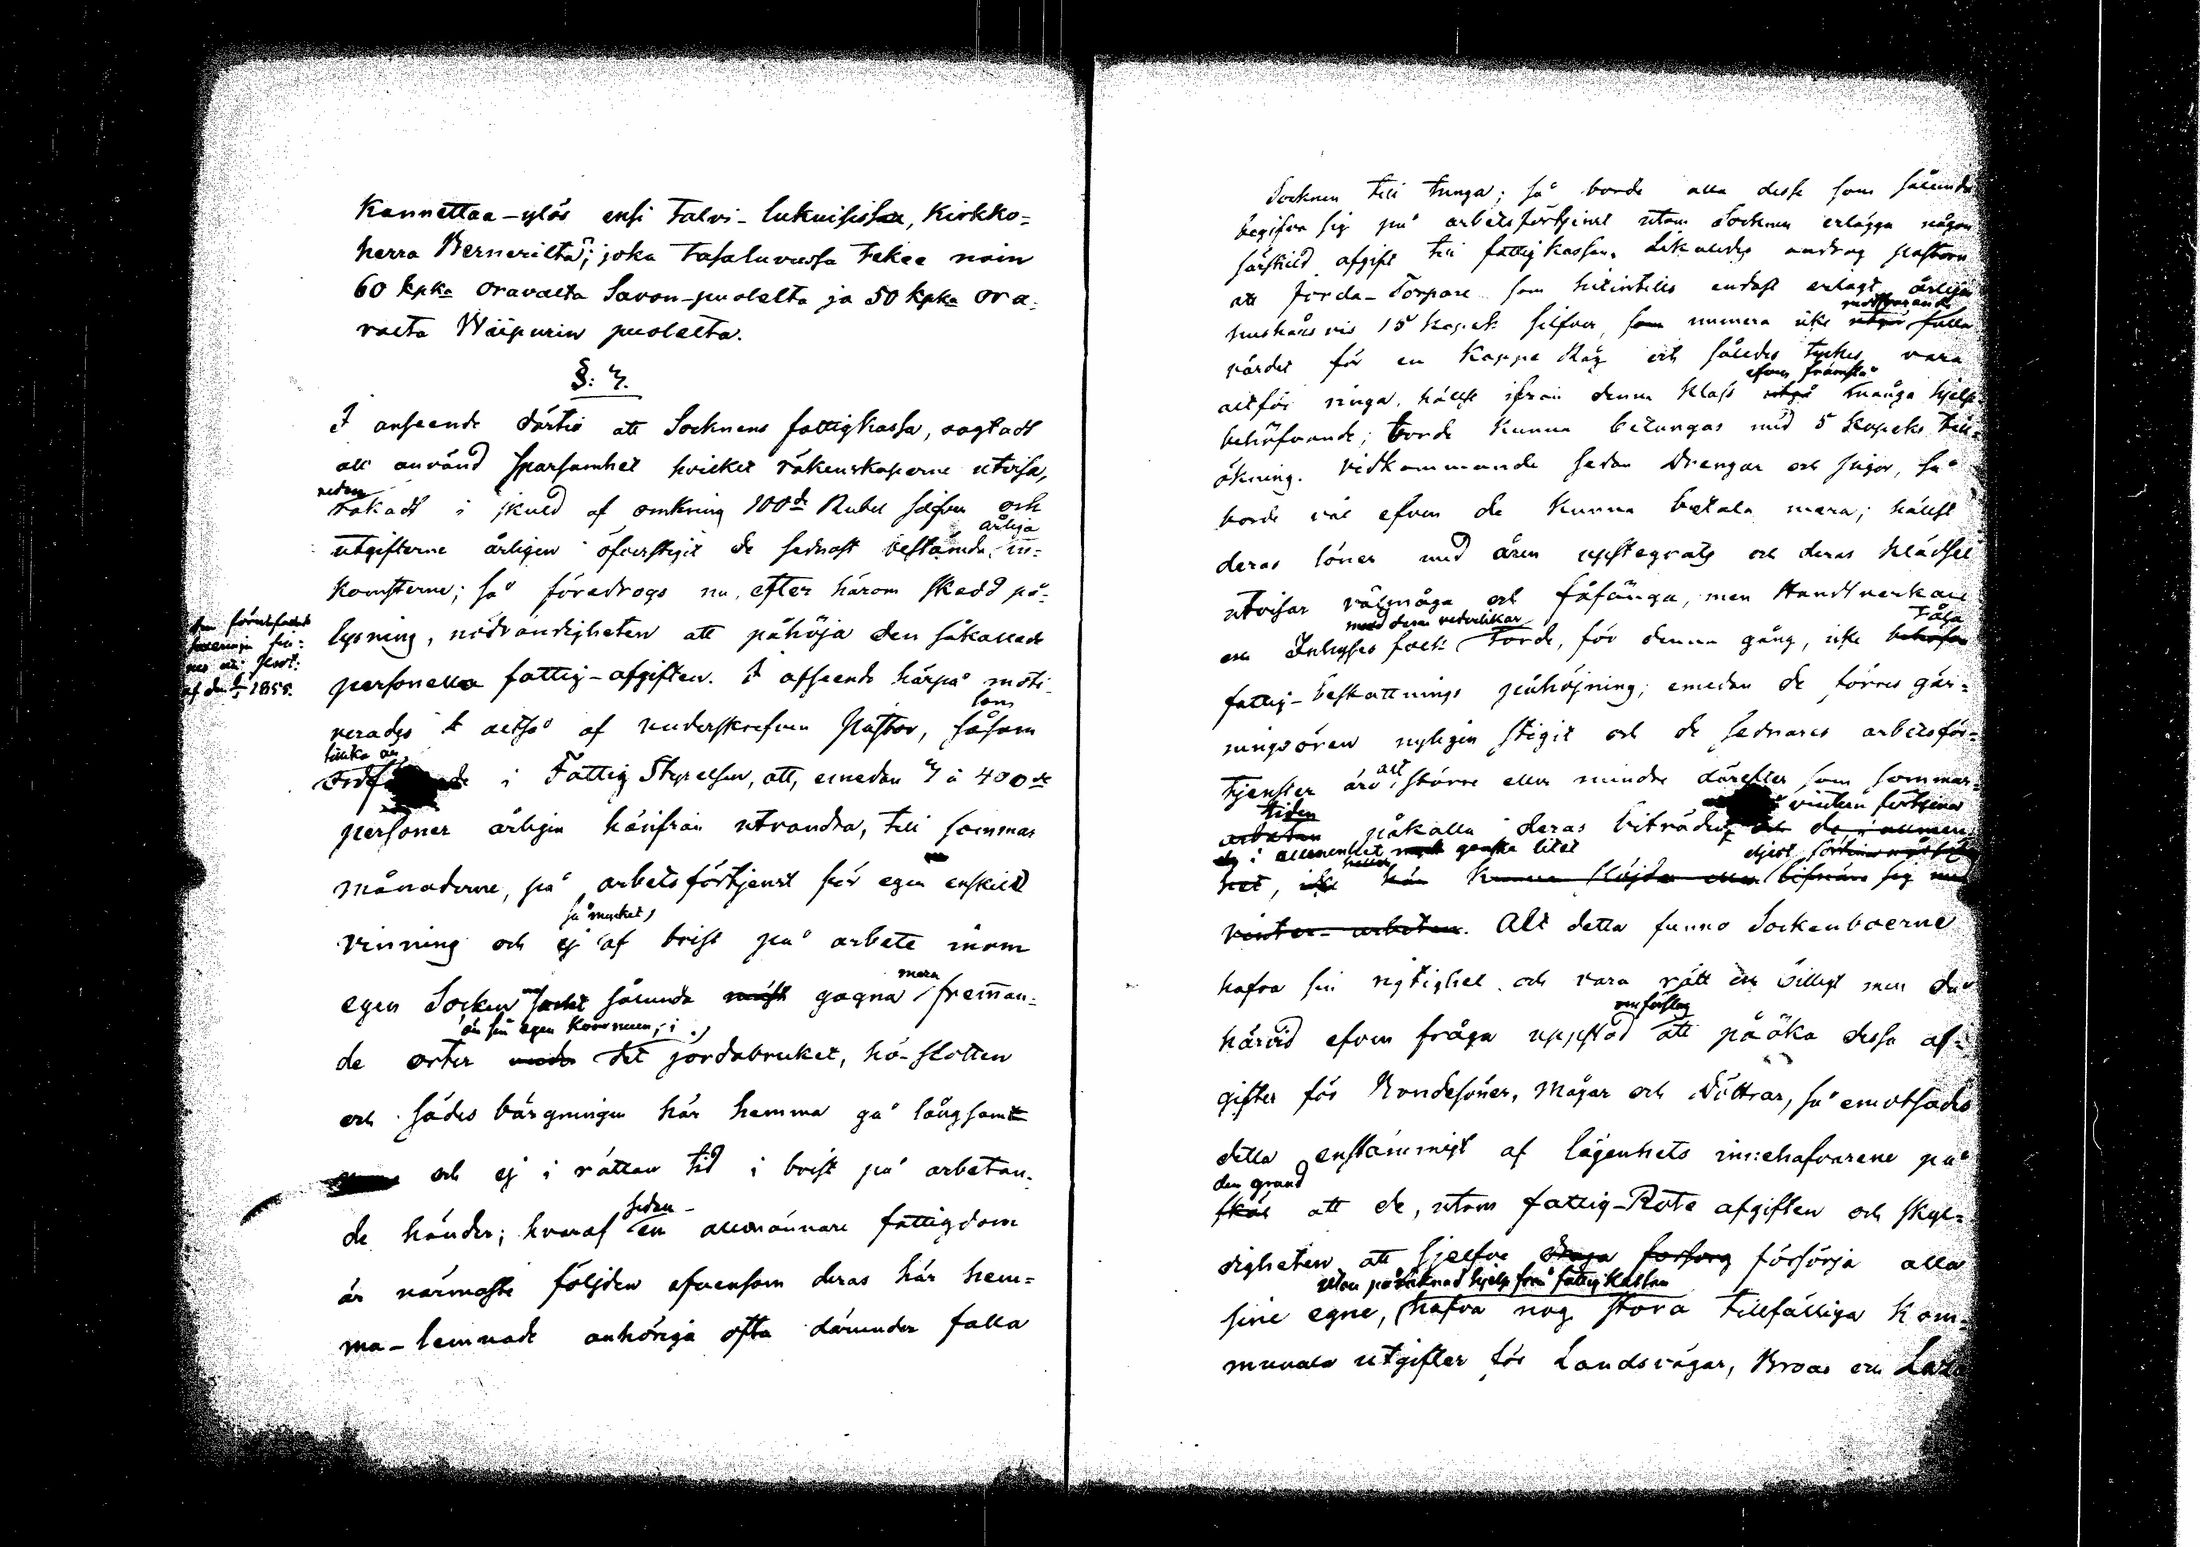 Kannettaa-ylös ensi Talvi-lukuisissa, Kirkko=
herra Bernerilta; joka tasaluvussa tekee noin
60 kpka oravalta Savon-puolelta ja 50 kpka ora=
valta Wiipurin puolelta.
§: 3.
I anseende därtill att Socknens fattigkassa, oagtadt
all använd sparsamhet hvilket räkenskaperne utvisa,
redan
råkadt i skuld af omkring 100de Rubel silfver och
årliga
utgifterne årligen öfverstigit de sednast bestämde in=
komsterne; så föredrogs nu, efter härom skedd på=
lysning, nödvändigheten att påhöja den såkallade
personella fattig-afgiften. I afseende härpå moti=
som
verades altså af underskrefven Pastor, såsom
i Fattig Styrelsen, att, emedan 3 à 400de
personer årligen härifrån utvandra, till sommar
månaderne, på arbetsförtjenst för egen enskild
så mycket
vinning och ej af brist på arbete inom
mera
egen Socken sålunda gagna främman=
än sin egen Kommun, i
de orter det jordabruket, hö-slotten
och sädes bärgningen här hemma gå långsamt
och ej i rättan tid i brist på arbetan=
sedan
de händer; hvaraf en allmännare fattigdom
är närmaste följden efvensom deras här hem=
ma-lemnade anhöriga ofta därunder falla
af den 1855.
Socknen till tunga; så borde alla desse som sålunda
begifva sig på arbetsförtjenst utom Socknen erlägga någon
särskild afgift till fattigkassan. Likaledes androg Pastorn
att Jorda-Torpare som hitintills endast erlagt årligen
motsvarande
hushålsvis 15 kopek silfver, som numera icke utgör fulla
värdet för en Kappe Råg och således tyckes vara
efven framstå
altför ringa, hällst ifrån denna Klass utgå många hjelp=
behöfvande; torde kunna betungas med 5 kopeks till=
ökning. Vidkommande sedan Drengar och Pigor, så
borde väl efven de kunna betala mera; hällst
deras löner med åren uppstegrats och deras klädsel
utvisar välmåga och fåfänga, men Handtverkare
med deras vederlikar tåla
och Inhyses folk torde, för denna gång, icke behöfva
fattig-beskattnings påhöjning; emedan de förres gär=
ningsören nyligen stigit och de sednares arbetsför=
alt
tjenster äro större eller mindre därefter som sommar=
tiden vintern förtjena
arbeten påkalla deras biträde och de i allmen=
i allmenhet ganska litet
het, icke här kunna slöjda eller bifinna sig med
vinter-arbeten. Alt detta funno Sockenboerne
hafva sin rigtighet och vara rätt och billigt men då
om förslag
härvid efven fråga uppstod att påöka dessa af=
gifter för Bondesöner, Mågar och Döttrar, så emotsades
detta enstämmigt af lägenhets innehafvarene på
den grund
skäl att de, utom fattig-Rote afgiften och skyl=
digheten att sjelfve draga försorg försörja alla
utan påräknad hjelp från fattigkassan
sine egne, hafva nog stora tillfälliga Kom=
munala utgifter för Landsvägar, Broar och